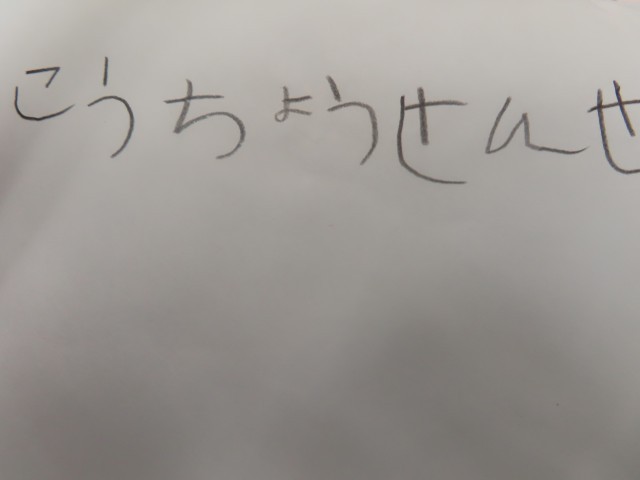 こうちょうせんせ